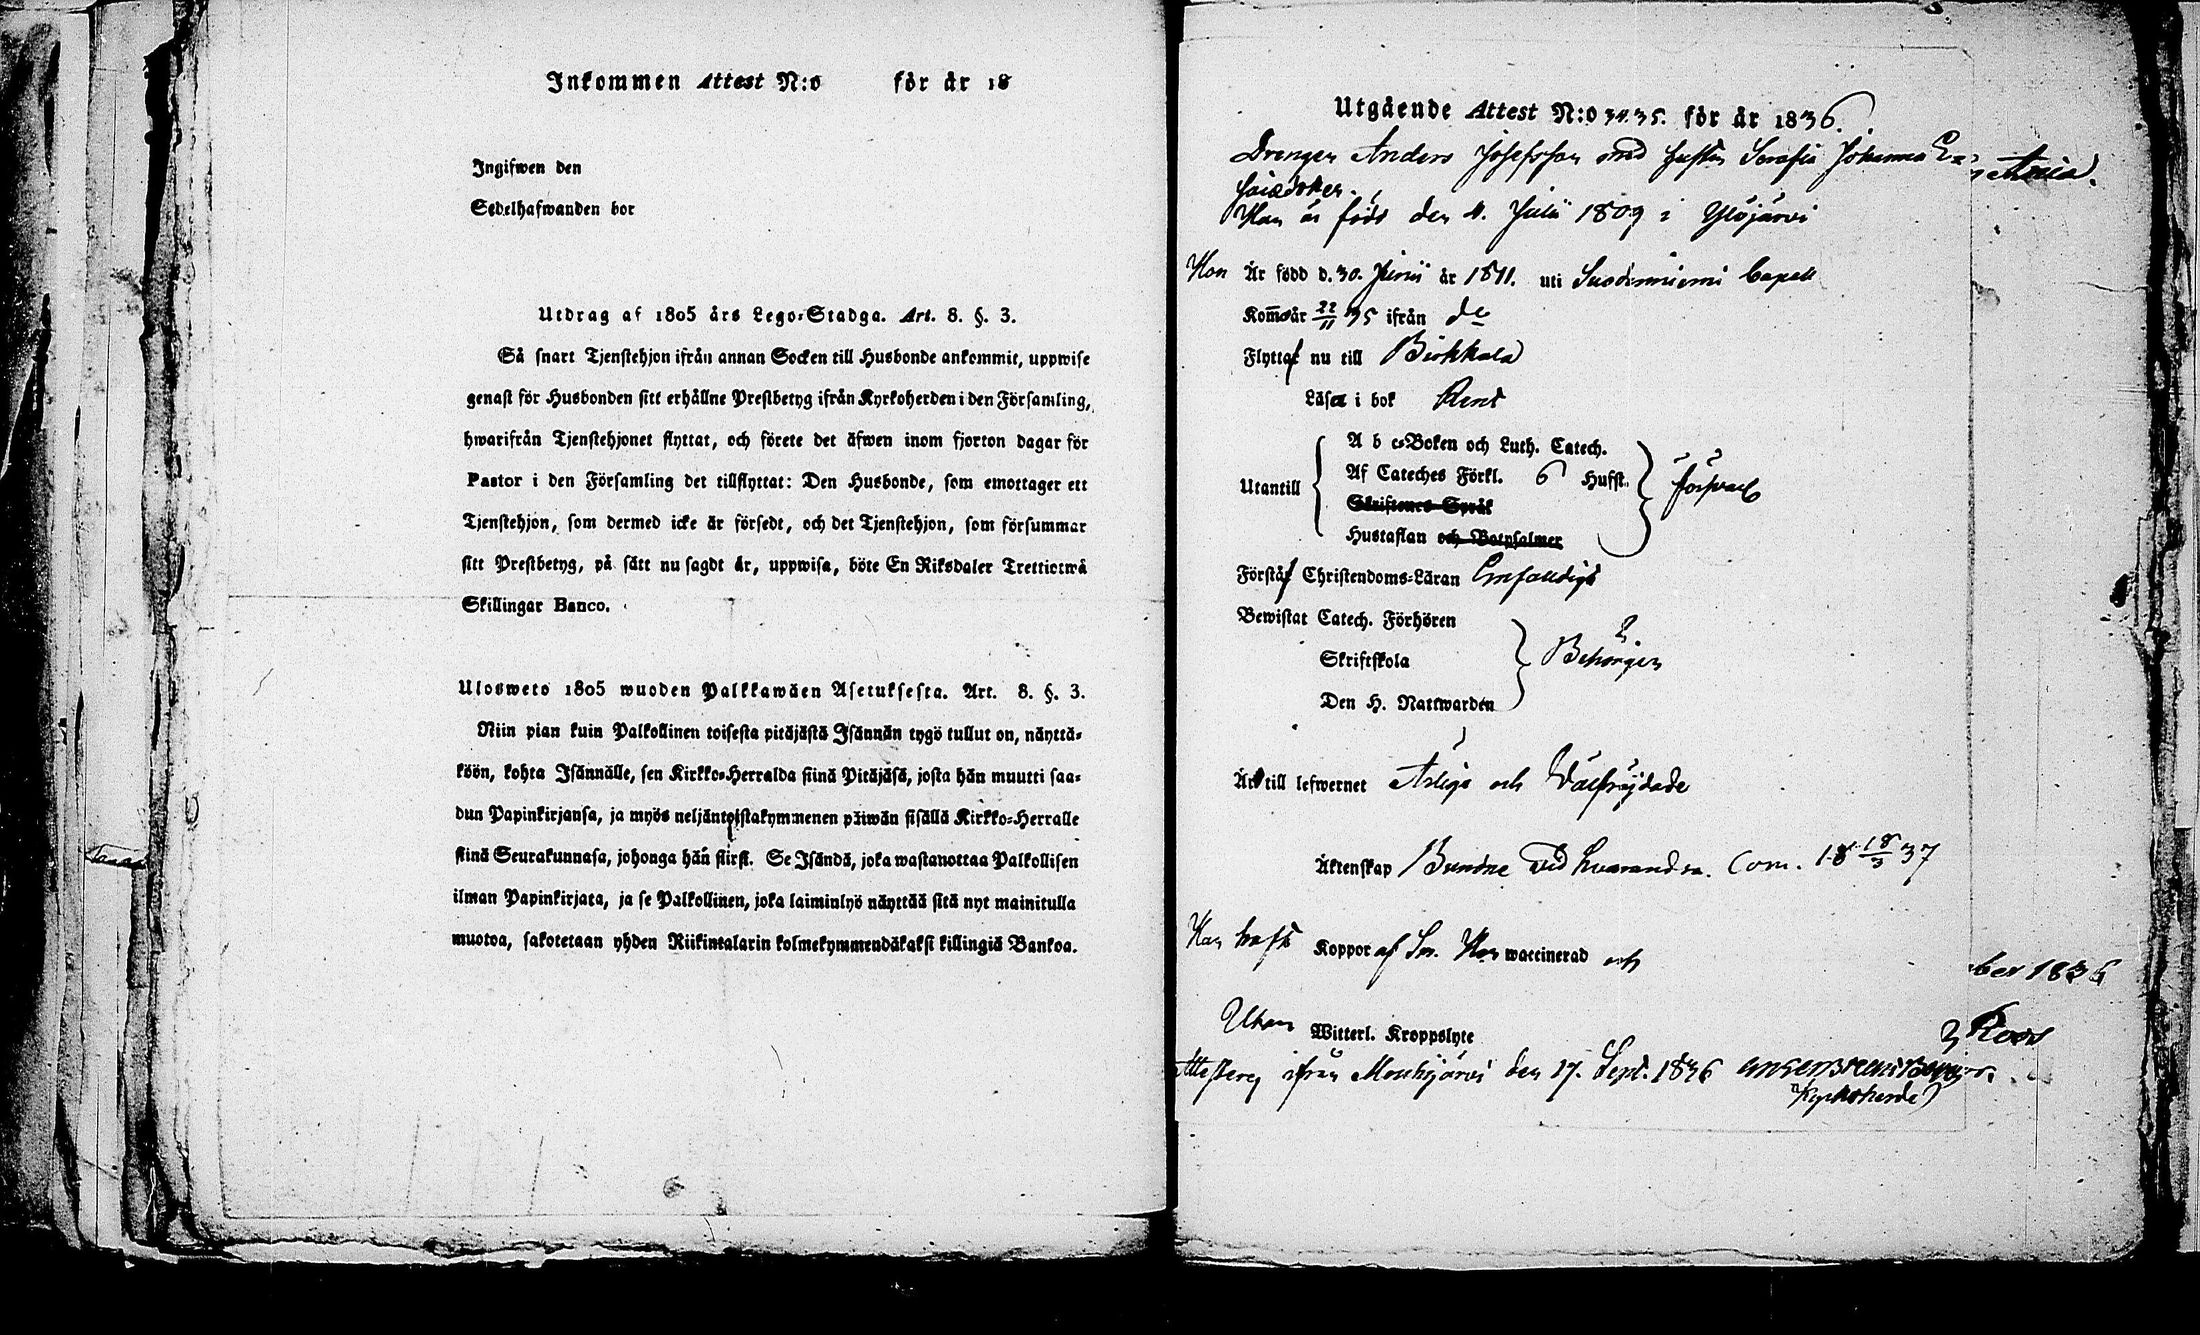 Inkommen Attest N:o för år 18
Ingifwen den
Sedelhafwanden bor
Utdrag af 1805 års Lego-Stadga. Art. 8. §. 3.
Så snart Tjenstehjon ifrån annan Socken till Husbonde ankommit, uppwise
genast för Husbonden sitt erhållne Prestbetyg ifrån Kyrkoherden i den Församling,
hwarifrån Tjenstehjonet flyttat, och förete det äfwen inom fjorton dagar för
Pastor i den Församling det tillflyttat: Den Husbonde, som emottager ett
Tjenstehjon, som dermed icke är försedt, och det Tjenstehjon, som försummar
sitt Prestbetyg, på sätt nu sagdt är, uppwisa, böte En Riksdaler Trettiotwå
Skillingar Banco.
Ulosweto 1805 wuoden Palkkawäen Asetuksesta. Art. 8. §. 3.
Niin pian kuin Palkollinen toisesta pitäjästä Isännän tygö tullut on, näyttä-
köön, kohta Isännälle, sen Kirkko-Herralda siinä Pitäjäsä, josta hän muutti saa-
dun Papinkirjansa, ja myös neljäntoistakymmenen päiwän sisällä Kirkko-Herralle
siinä Seurakunnasa, johonga hän siirsi. Se Isändä, joka wastanottaa Palkollisen
ilman Papinkirjata, ja se Palkollinen, joka laiminlyö näyttää sitä nyt mainitulla
muotoa, sakotetaan yhden Riikintalarin kolmekymmendäkaksi killingiä Bankoa.
Utgående Attest N:o 34.35. för år 1836.
Drengen Anders Josefsson med hustru Serafia Johanna
Han är född den 4. Julii 1809 i Ylöjärvi
Hon Är född d. 30. Junii år 1811. uti Suodenniemi Capell
Kom̅o år 22/11 35 ifrån do
Flytta nu till Birkkala
Läsa i bok Rent
A b c-Boken och Luth. Catech.
Af Cateches Förkl. 6 Hufst.
Utantill försvarl
Skriftenes Språk
Hustaflan och Botpsalmer
Förstå Christendoms-Läran Enfaldigt
Bewistat Catech. Förhören
Skriftskola Behörigen
Den H. Nattwarden
Är till lefwernet Ärliga och Välfrejdade
Äktenskap Bundne Vid hvarandra. Com. 18 18/3 37
Han haft Koppor af Sn. Hon waccinerad och
ber 1836
Utan Witterl. Kroppslyte
Roos
Attesterar ifrån Mouhijärvi den 17. Sept. 1836
Kyrkoherde